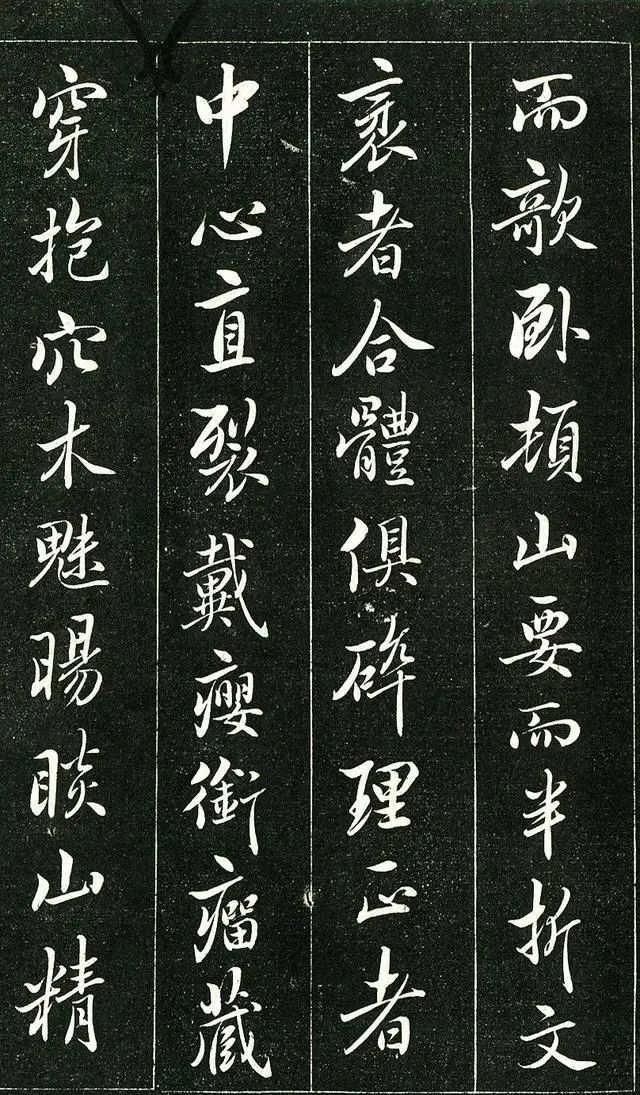 而欹卧頓山要而半折文
衺者合體俱碎理正者
中心直裂戴癭銜瘤藏
穿抱穴木魅暘睒山精